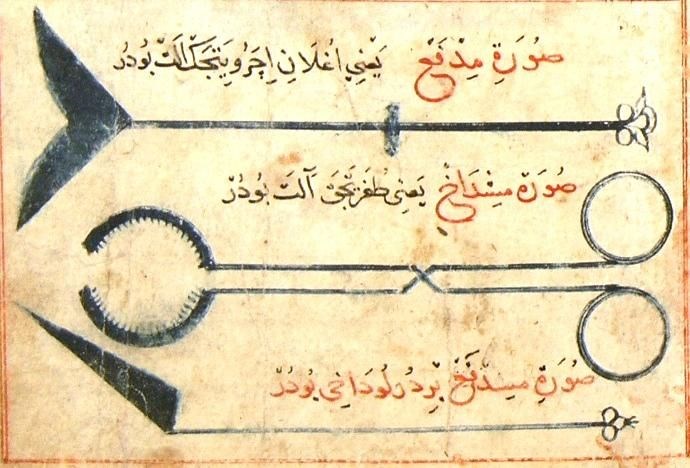 صُورَةِ مِدْفَعْ يَعْنِي اُغْلَانِ اِچَرُو يَتَجَكْ اَلَتْ بُودُرْ
صُورَةِ مِشْدَاخْ يَعْنِي آلَتْ بُودُرْ
صُورَةِ مِشْدَخْ بِرْ دُرْلُو دَاخِي بُودُرْ